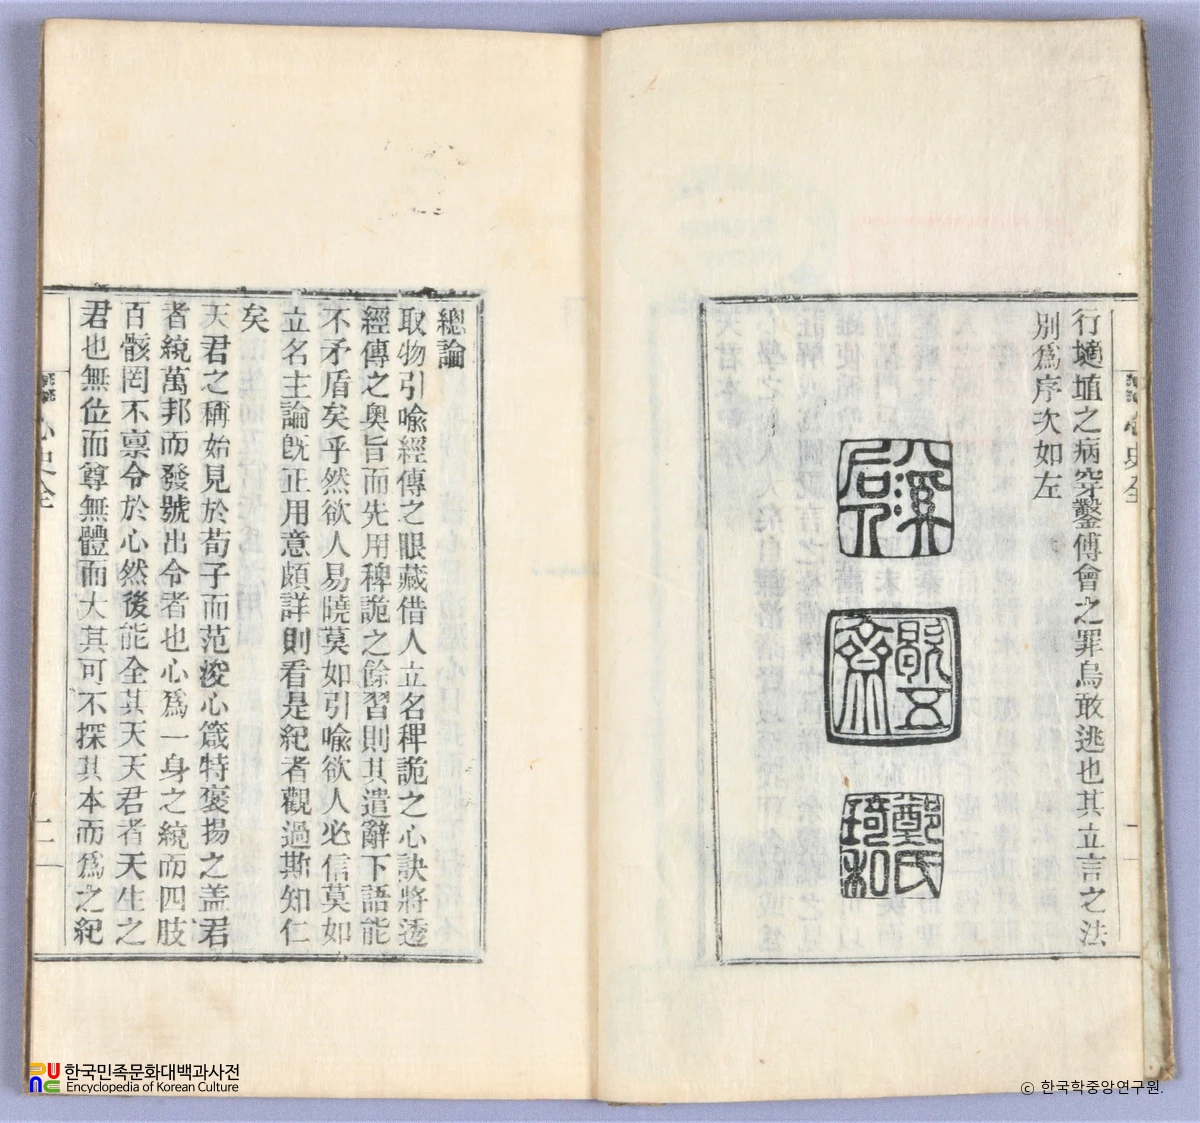 行擿埴之病穿鑿傅會之罪烏敢逃也其立言之法
別爲序次如左
鄭氏
琦和
心史全
一
總論
取物引喩經傳之眼藏借人立名稗詭之心訣將透
經傳之奧旨而先用稗詭之餘習則其遣辭下語能
不矛盾矣乎然欲人易曉莫如引喩欲人必信莫如
立名主論旣正用意頗詳則看是紀者觀過斯知仁
矣
天君之稱始見於荀子而范浚心箴特褒揚之盖君
者統萬邦而發號出令者也心爲一身之統而四肢
百骸罔不禀令於心然後能全其天天君者天生之
君也無位而尊無體而大其可不探其本而爲之紀
心史全
二
한국민족문화대백과사전
Encyclopedia of Korean Culture
ⓒ 한국학중앙연구원.